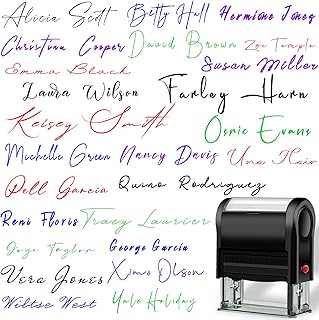 Alicia Scott Betty Hall Hermione Jones
Christina Cooper David Brown Zoe Temple
Emma Black Susan Miller
Laura Wilson Farley Harn
Keisey Smith Osric Evans
Michelle Green Nancy Davis Una Hair
Pell Garcia Quino Rodriguez
Reni Floris Tracy Laurier
Joye Taylor George Garcia
Vera Jones Ximo Olson
Wiltse West Yale Holiday